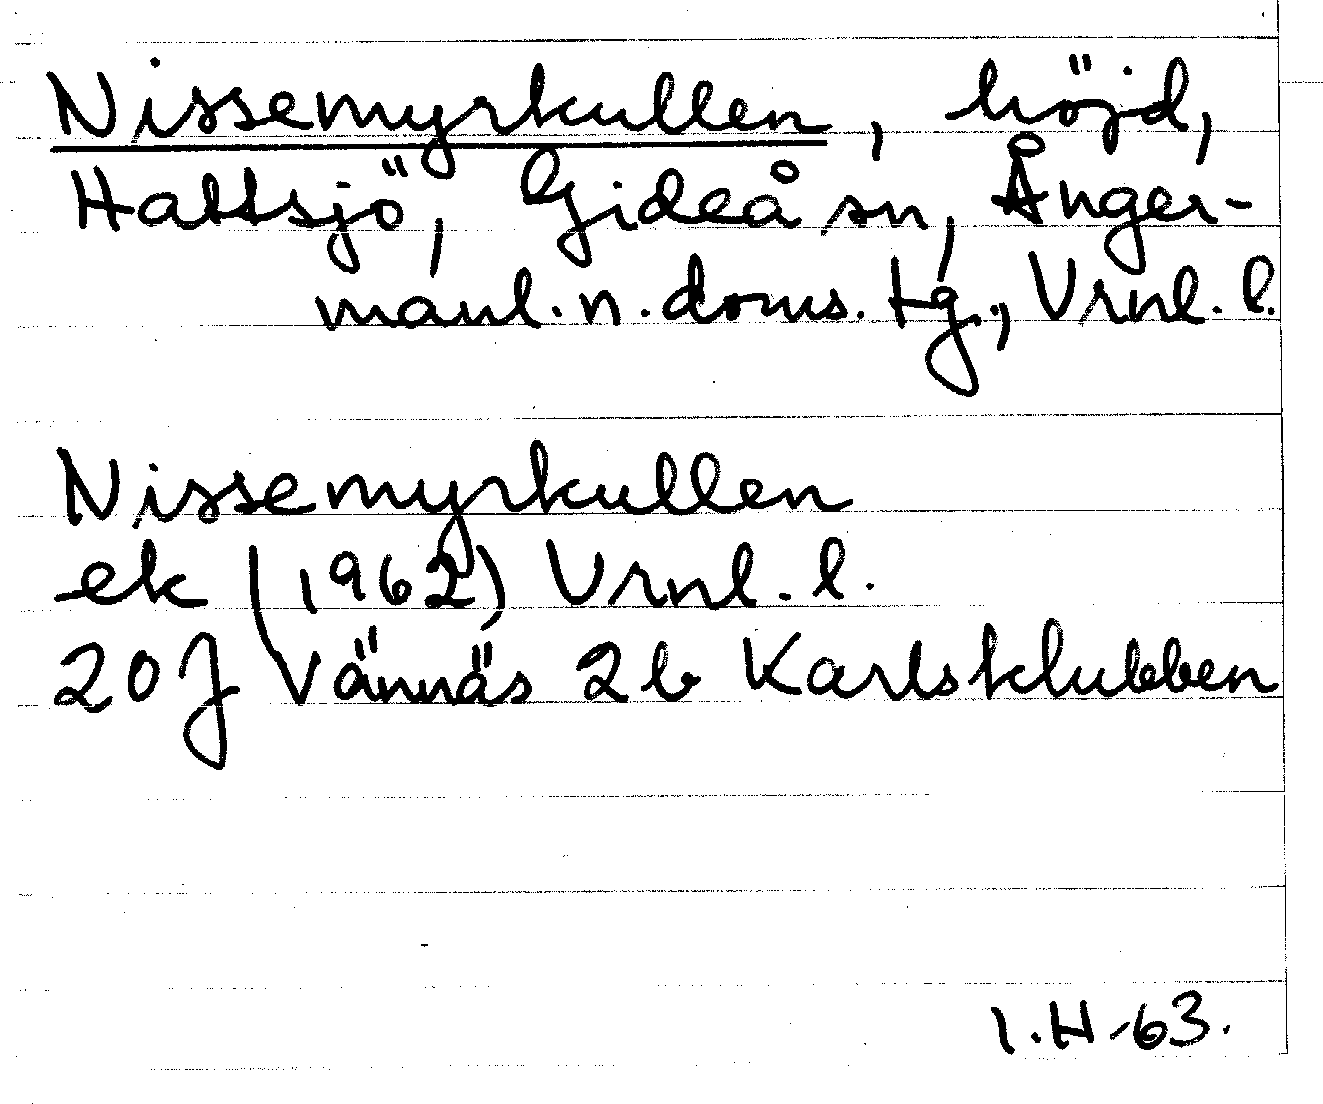 Nissemyrkullen, höjd,
Hattsjö, Gideå sn, Ånger-
manl. n. doms. tg., Vrnl. l.
Nissemyrkullen
ek (1962) Vrnl. l.
20 J Vännäs 2b Karlsklubben
I.H-63.